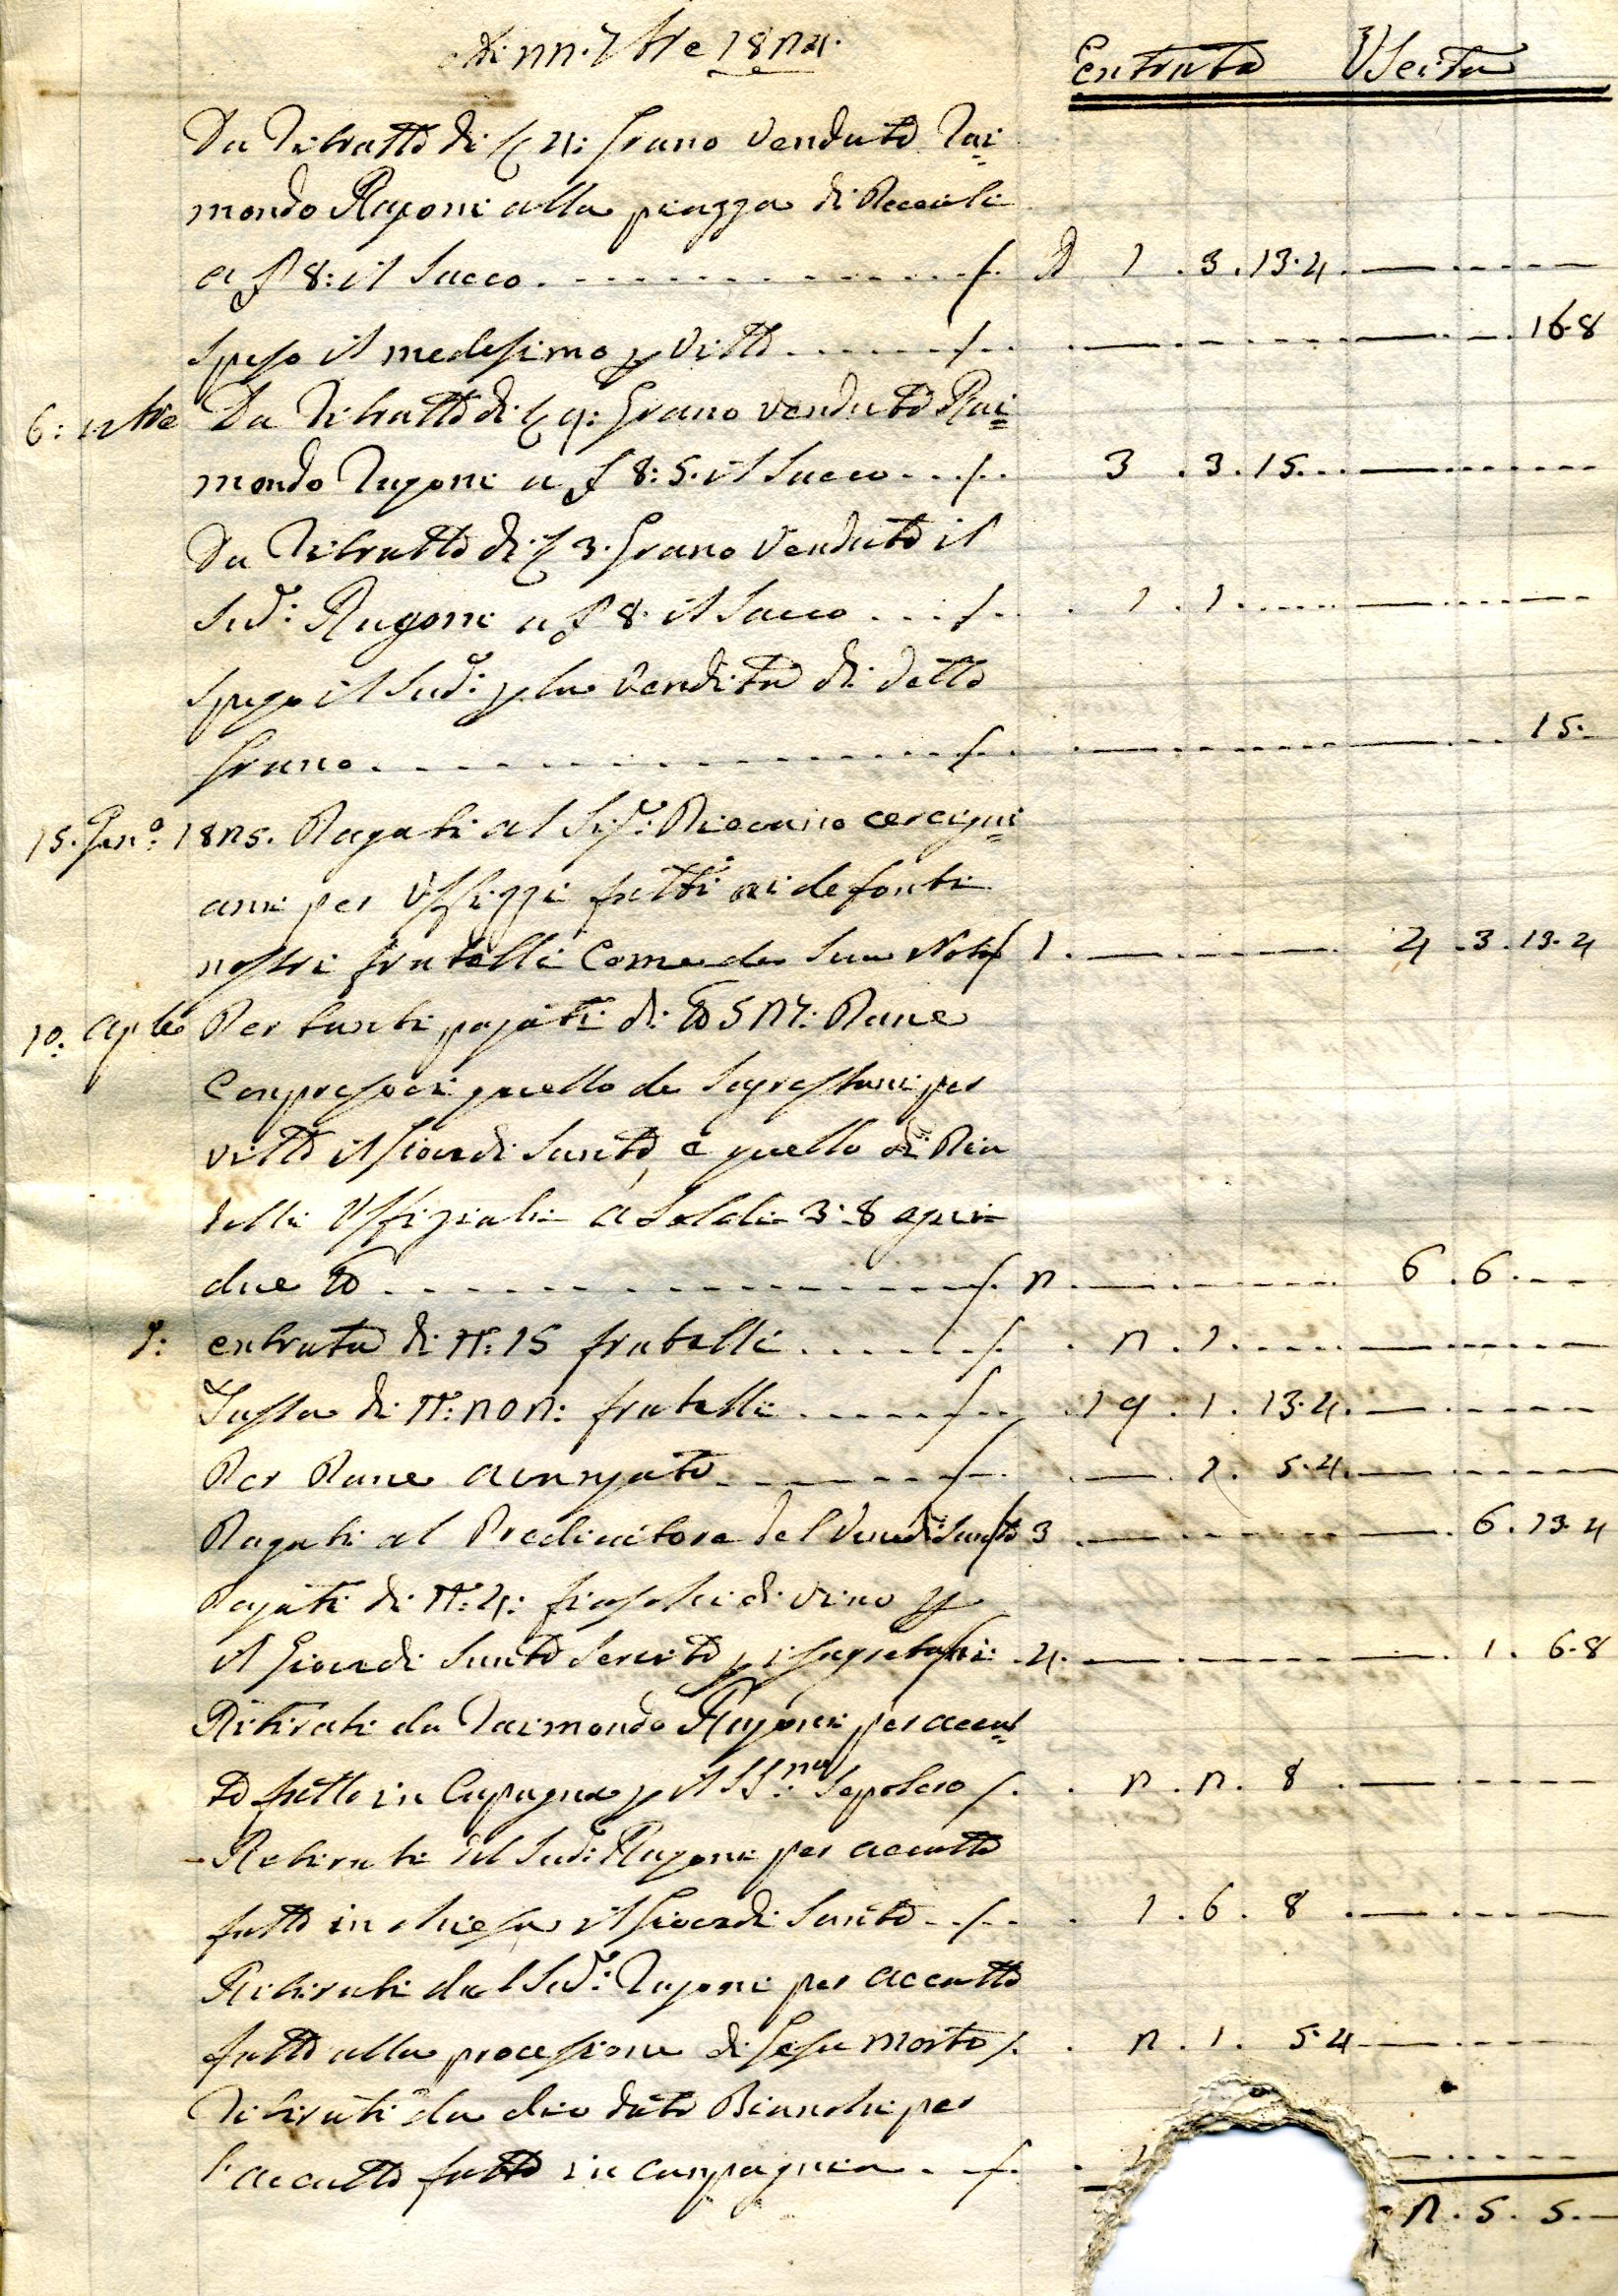 Di 22. 7bre 1824. Entrata Uscita
Da Ritratto di 4: Grano Venduto Rai=
mondo Ragoni alla piazza di
a £ 8: il Sacco . / . 1 . 3 . 13.4
Speso il medesimo p Vitto . / . 16.8
6: 12bre Da Ritratto di 9: Grano venduto Rai=
mondo Ragoni a £ 8: 5. il Sacco . / . 3 . 3 . 15
Da Ritratto di 3. Grano Venduto il
Sud: Ragoni a £ 8. il Sacco . / . 1 . 1
Speso il Sud: p la Vendita di detto
Grano . / . 15.
15. Gen: 1825. Pagati al Sig: Piovano cercigni=
ani per Uffizzi fatti ai defonti
nostri fratelli Come da Sua Nota / 1 . 4 . 3 . 13.4
10: Aple Per tanti pagati di 527: Pane
Conpresovi quello de Sagrestani per
vitto il Giovedi Santo, e quello di Piu
delli Uffiziali a Soldi 3: 8 ogni
due . / . 2 . 6 . 6
d: entrata di N: 15 fratelli . / . 2 . 1
Tassa di N: 202: fratelli . / . 19 . 1 . 13.4
Per Pane avanzato . / . 1 . 5.4
Pagati al Predicatore del Venerdi Santo 3 . 6 . 13.4
Pagati di N: 4: fiaschi di vino p
il Giovedi Santo Servito p i Sagrestani . 4 . 1 . 6.8
Ritirati da Raimondo Ragoni per accat=
to fatto in Capagna p il SS:mo Sepolcro / . 2 . 2 . 8
Retirati dal Sud: Ragoni per accatto
fatto in chiesa il Giovedi Santo . / . 1 . 6 . 8
Ritirati dal Sud: Ragoni per accatto
fatto alla processione di Gesu morto / . 2 . 1 . 5.4
Ritirati da dio dato Bianchi per
l'accatto fatto in canpagnia . / .
2 . 5 . 5.